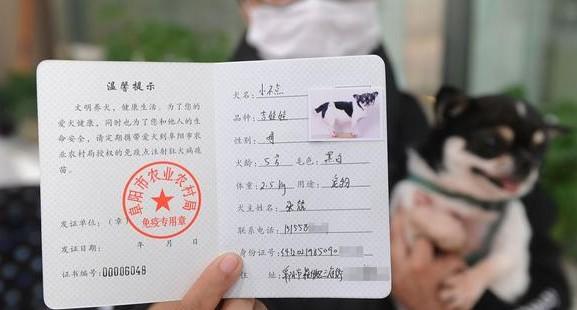 温馨提示
文明养犬，健康生活。为了您的
爱犬健康，同时也为了您和他人的生
命安全，请定期携带爱犬到阜阳市农
业农村局授权的免疫点注射狂犬病疫
苗。
阜阳市农业农村局
免疫专用章
发证单位：（章
发证日期： 年 月 日
证书编号：00006048
犬名：小不点
品种：吉娃娃
性别：
犬龄：5岁 毛色：黑白
体重：2.5kg 用途：宠物
犬主姓名：
联系电话：131558
身份证号：
住 址：